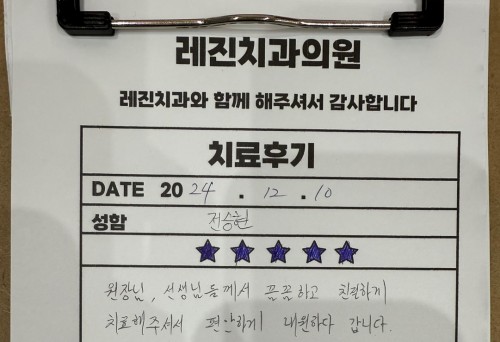 레진치과의원
레진치과와 함께 해주셔서 감사합니다
치료후기
DATE 2024 . 12 . 10
성함 전승현
원장님, 선생님들께서 꼼꼼하고 친절하게
치료해주셔서 편안하게 내원하다 갑니다.